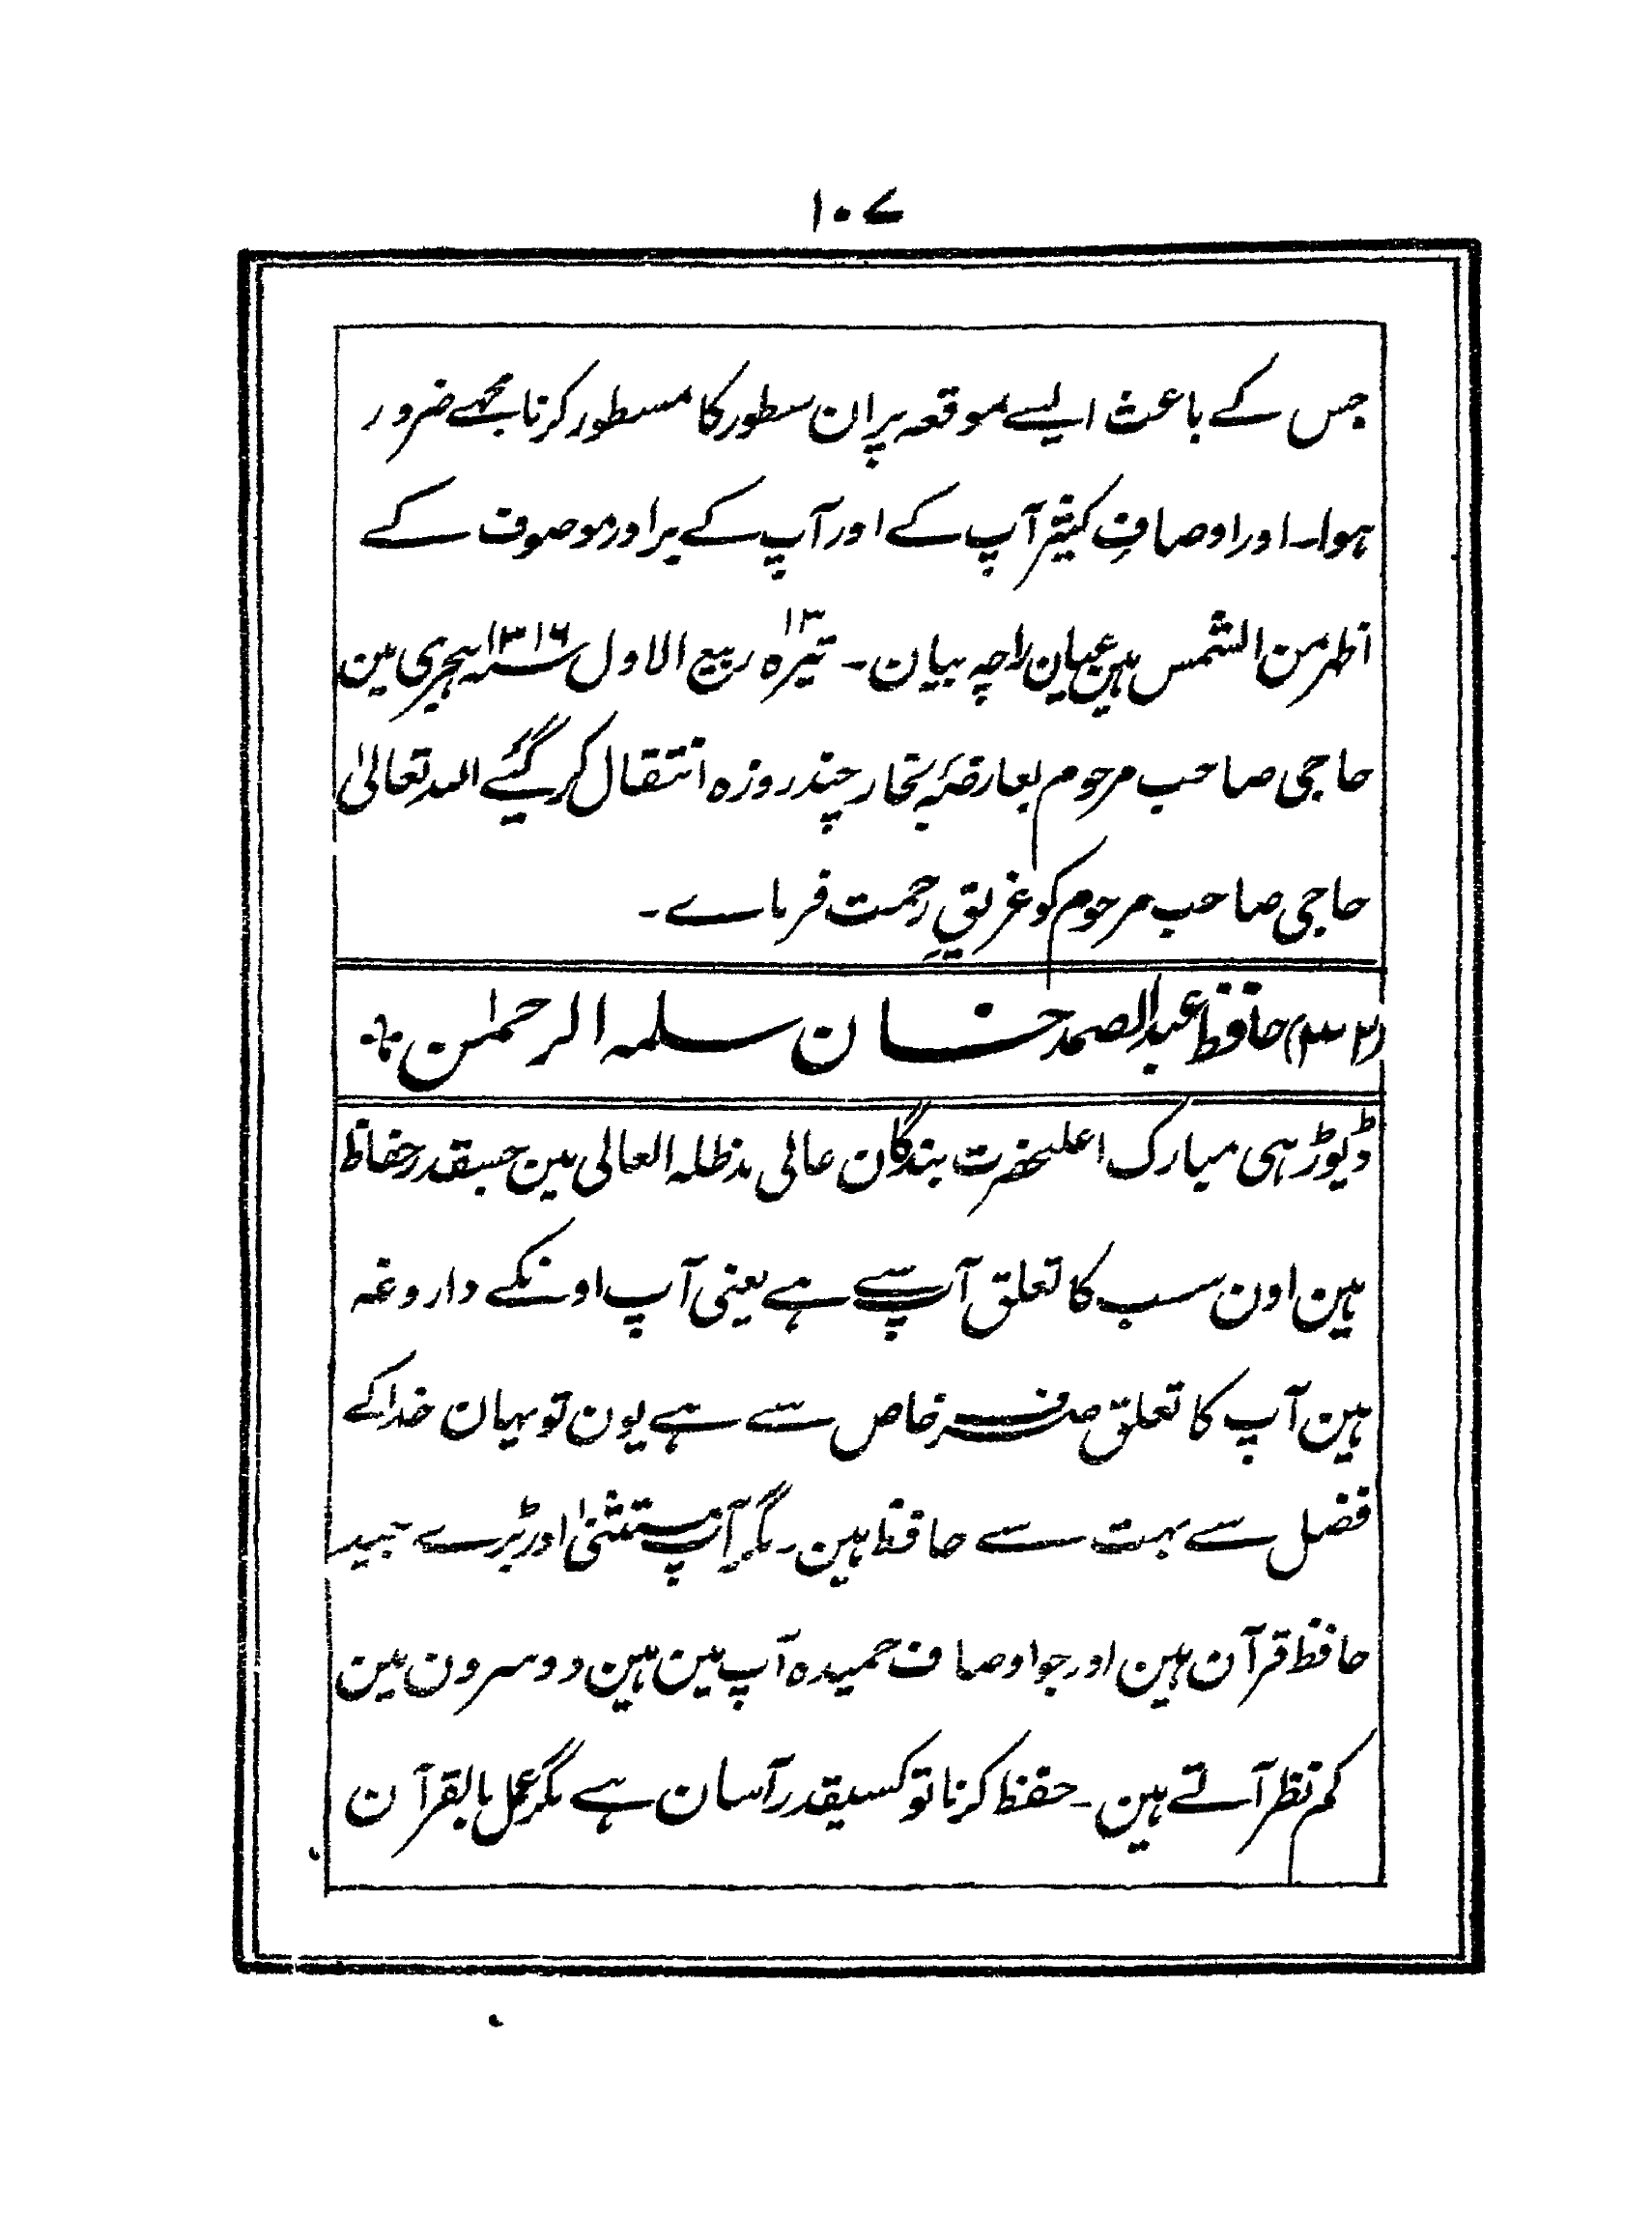 ۱۰۷
جس کے باعث ایسے موقعہ پر ان سطور کا مسطور کرنا مجھے ضرور
ہوا۔ اور اوصافِ کثیر آپ کے اور آپ کے برادر موصوف کے
اظہر من الشمس ہین عیان راچہ بیان۔ تیرہ ۱۳ ربیع الاول سنہ ۱۳۱۶ ہجری مین
حاجی صاحب مرحوم بعارضۂ بخار چند روزہ انتقال کر گئے اللہ تعالیٰ
حاجی صاحب مرحوم کو غریقِ رحمت فرماے۔
حافظ عبدالصمد خان سلمہ الرحمٰن
ڈیوڑہی مبارک اعلیحضرت بندگان عالی مدظلہ العالی مین جسقدر حفاظ
ہین اون سب کا تعلق آپ سے ہے یعنی آپ اونکے داروغہ
ہین آپ کا تعلق صرف خاص سے ہے یون تو یہان خدا کے
فضل سے بہت سے حافظ ہین۔ مگر آپ مستثنیٰ اور بڑے جید
حافظ قرآن ہین اور جو اوصاف حمیدہ آپ مین ہین دوسرون مین
کم نظر آتے ہین۔ حفظ کرنا تو کسیقدر آسان ہے مگر عمل بالقرآن